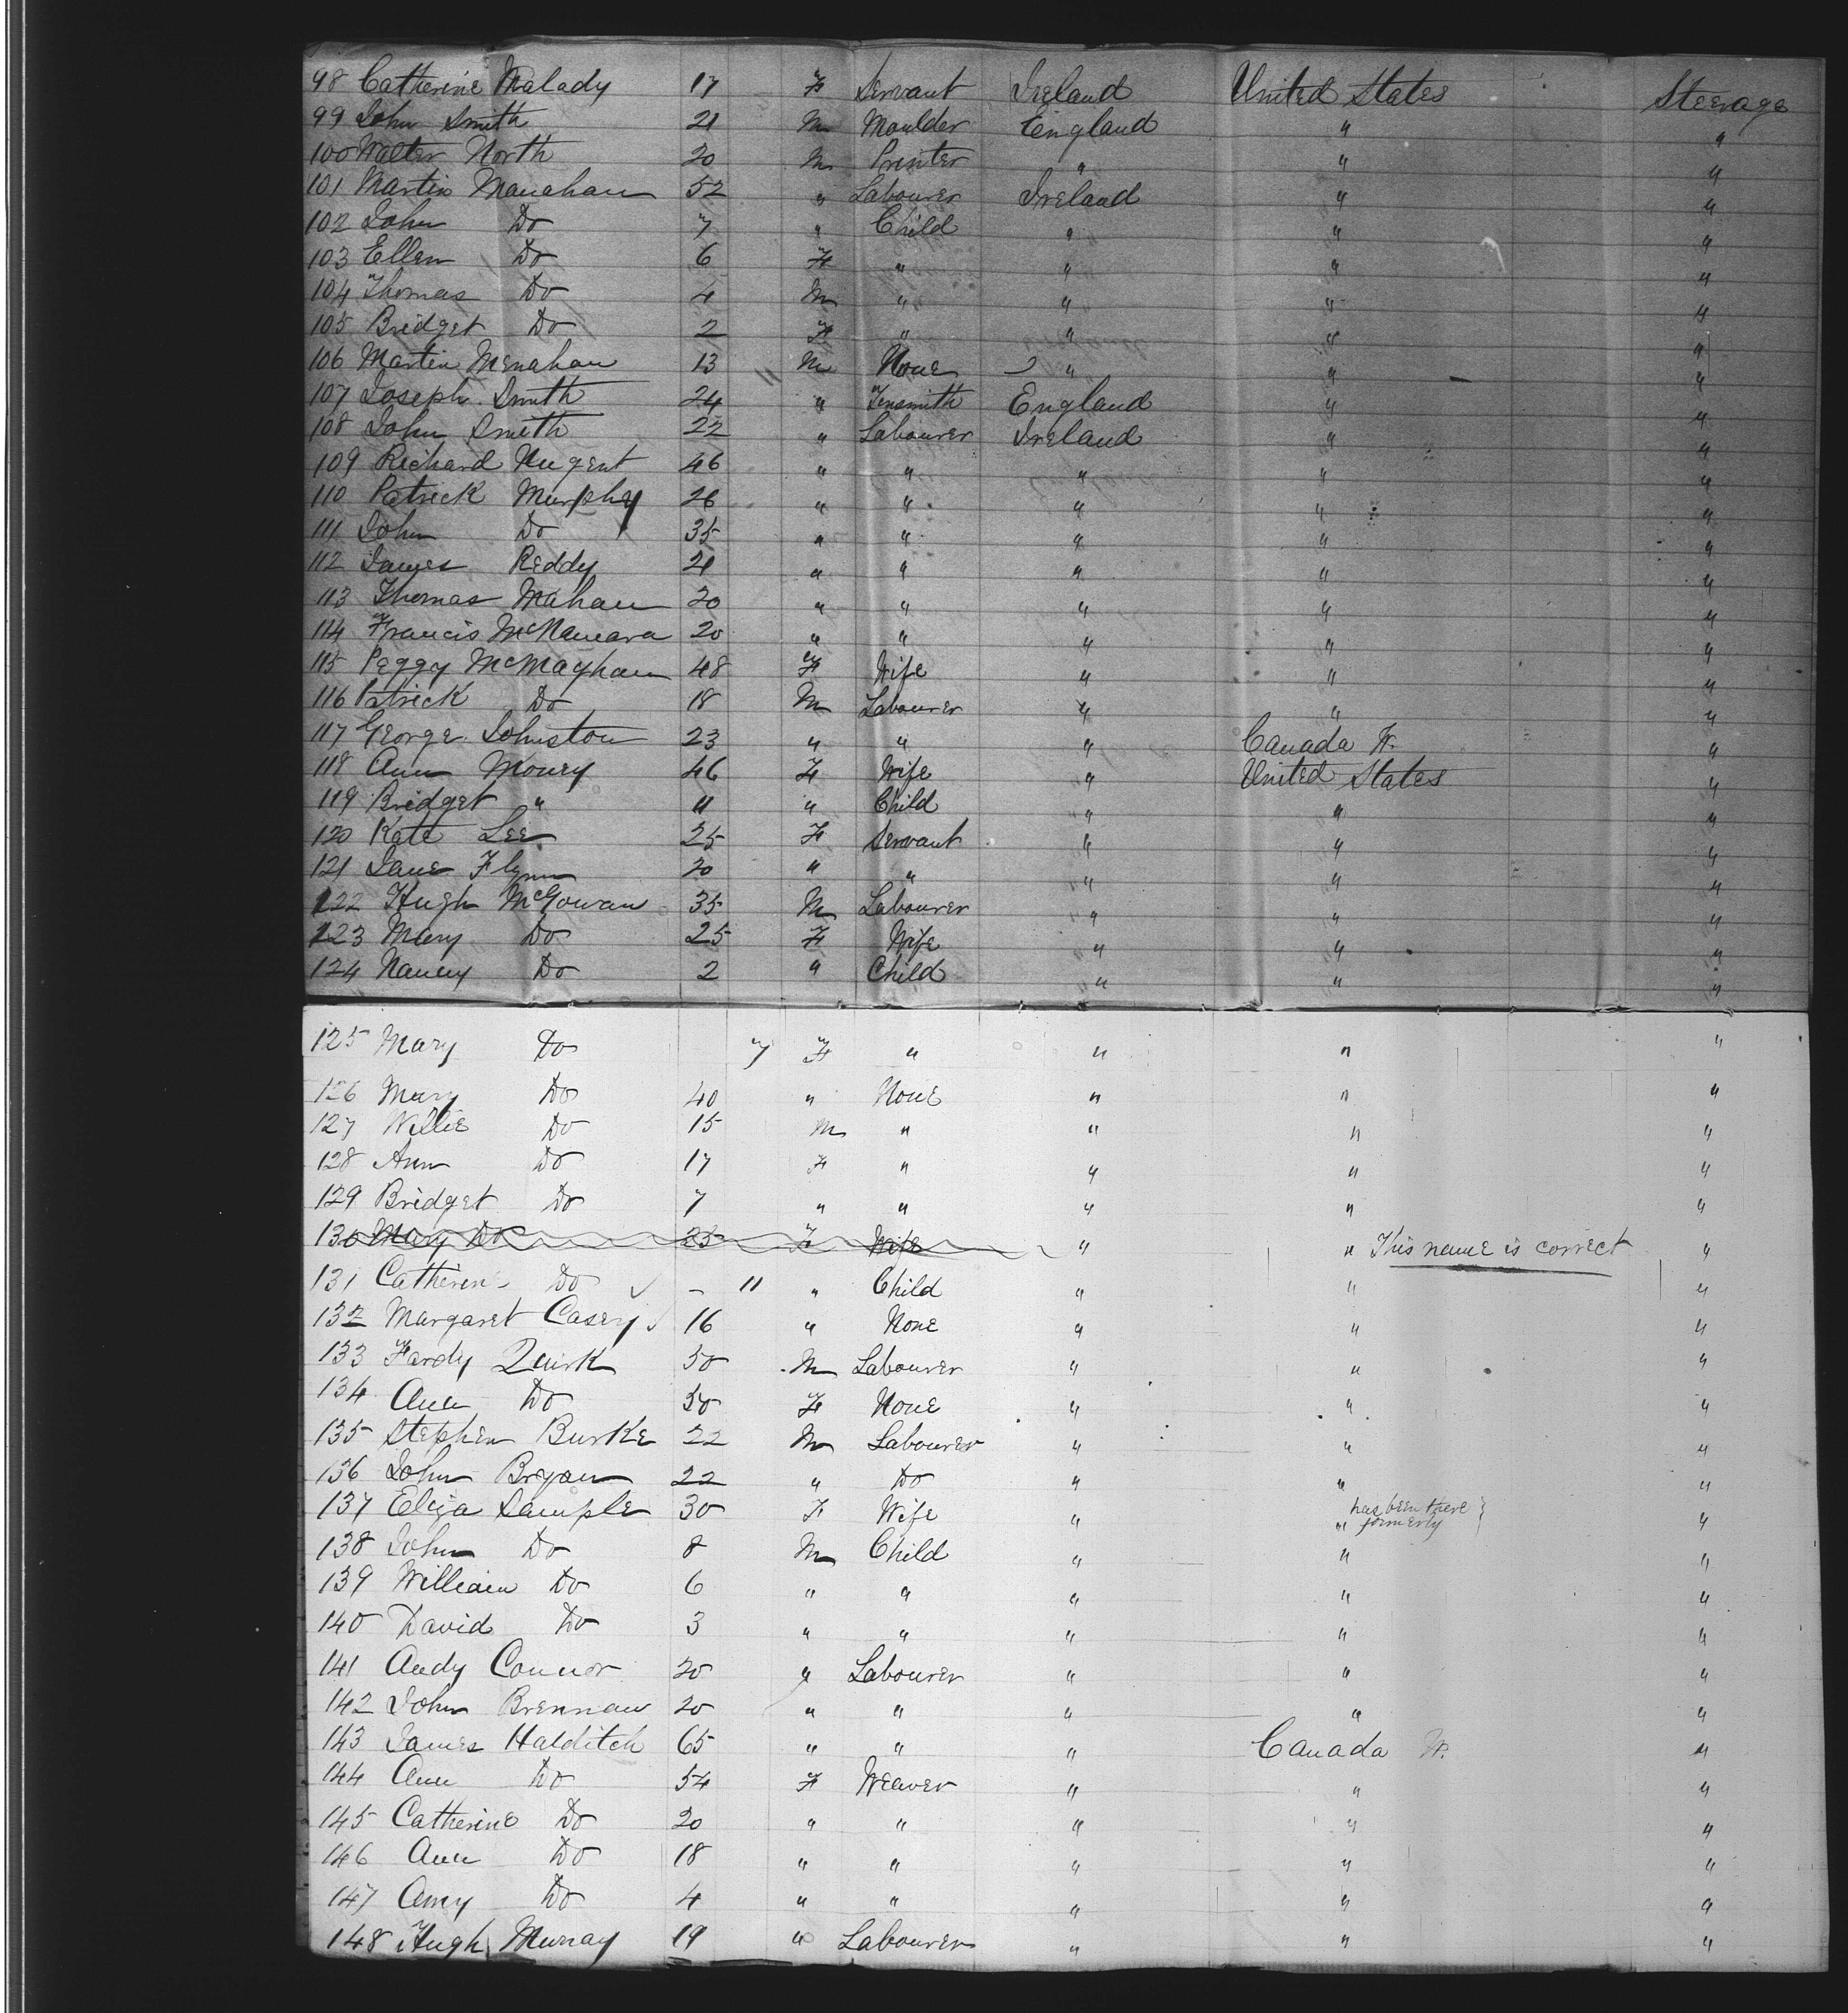 98 Catherine Malady 17 F Servant Ireland United States Steerage
99 John Smith 21 M Moulder England " "
100 Walter North 20 M Printer " " "
101 Martin Manahan 52 " Labourer Ireland " "
102 John Do 7 " Child " " "
103 Ellen Do 6 F " " " "
104 Thomas Do 4 M " " " "
105 Bridget Do 2 F " " " "
106 Martin Menahan 13 M None " " "
107 Joseph Smith 24 " Tinsmith England " "
108 John Smith 22 " Labourer Ireland " "
109 Richard Nugent 46 " " " " "
110 Patrick Murphy 26 " " " " "
111 John Do 35 " " " " "
112 James Reddy 21 " " " " "
113 Thomas Mahan 20 " " " " "
114 Francis McNamara 20 " " " " "
115 Peggy McMaghan 48 F Wife " " "
116 Patrick Do 18 M Labourer " " "
117 George Johnston 23 " " " Canada W. "
118 Ann Money 46 F Wife " United States "
119 Bridget " 11 " Child " " "
120 Kate Lee 25 F Servant " " "
121 Jane Flynn 20 " " " " "
122 Hugh McGowan 35 M Labourer " " "
123 Mary Do 25 F Wife " " "
124 Nancy Do 2 " Child " " "
125 Mary Do 7 F " " " "
126 Mary Do 40 " None " " "
127 Willie Do 15 M " " " "
128 Ann Do 17 F " " " "
129 Bridget Do 7 " " " " "
130 Mary Do 25 F Wife " " This name is correct "
131 Catherine Do - 11 " Child " " "
132 Margaret Casey 16 " None " " "
133 Fardy Quirk 50 M Labourer " " "
134 Ann Do 50 F None " " "
135 Stephen Burke 22 M Labourer " " "
136 John Bryan 22 " Do " " "
137 Eliza Sample 30 F Wife " " has been there formerly "
138 John Do 8 M Child " " "
139 William Do 6 " " " " "
140 David Do 3 " " " " "
141 Andy Connor 20 " Labourer " " "
142 John Brennan 20 " " " " "
143 James Halditch 65 " " " Canada W. "
144 Ann Do 54 F Weaver " " "
145 Catherine Do 20 " " " " "
146 Ann Do 18 " " " " "
147 Amy Do 4 " " " " "
148 Hugh Murray 19 " Labourer " " "